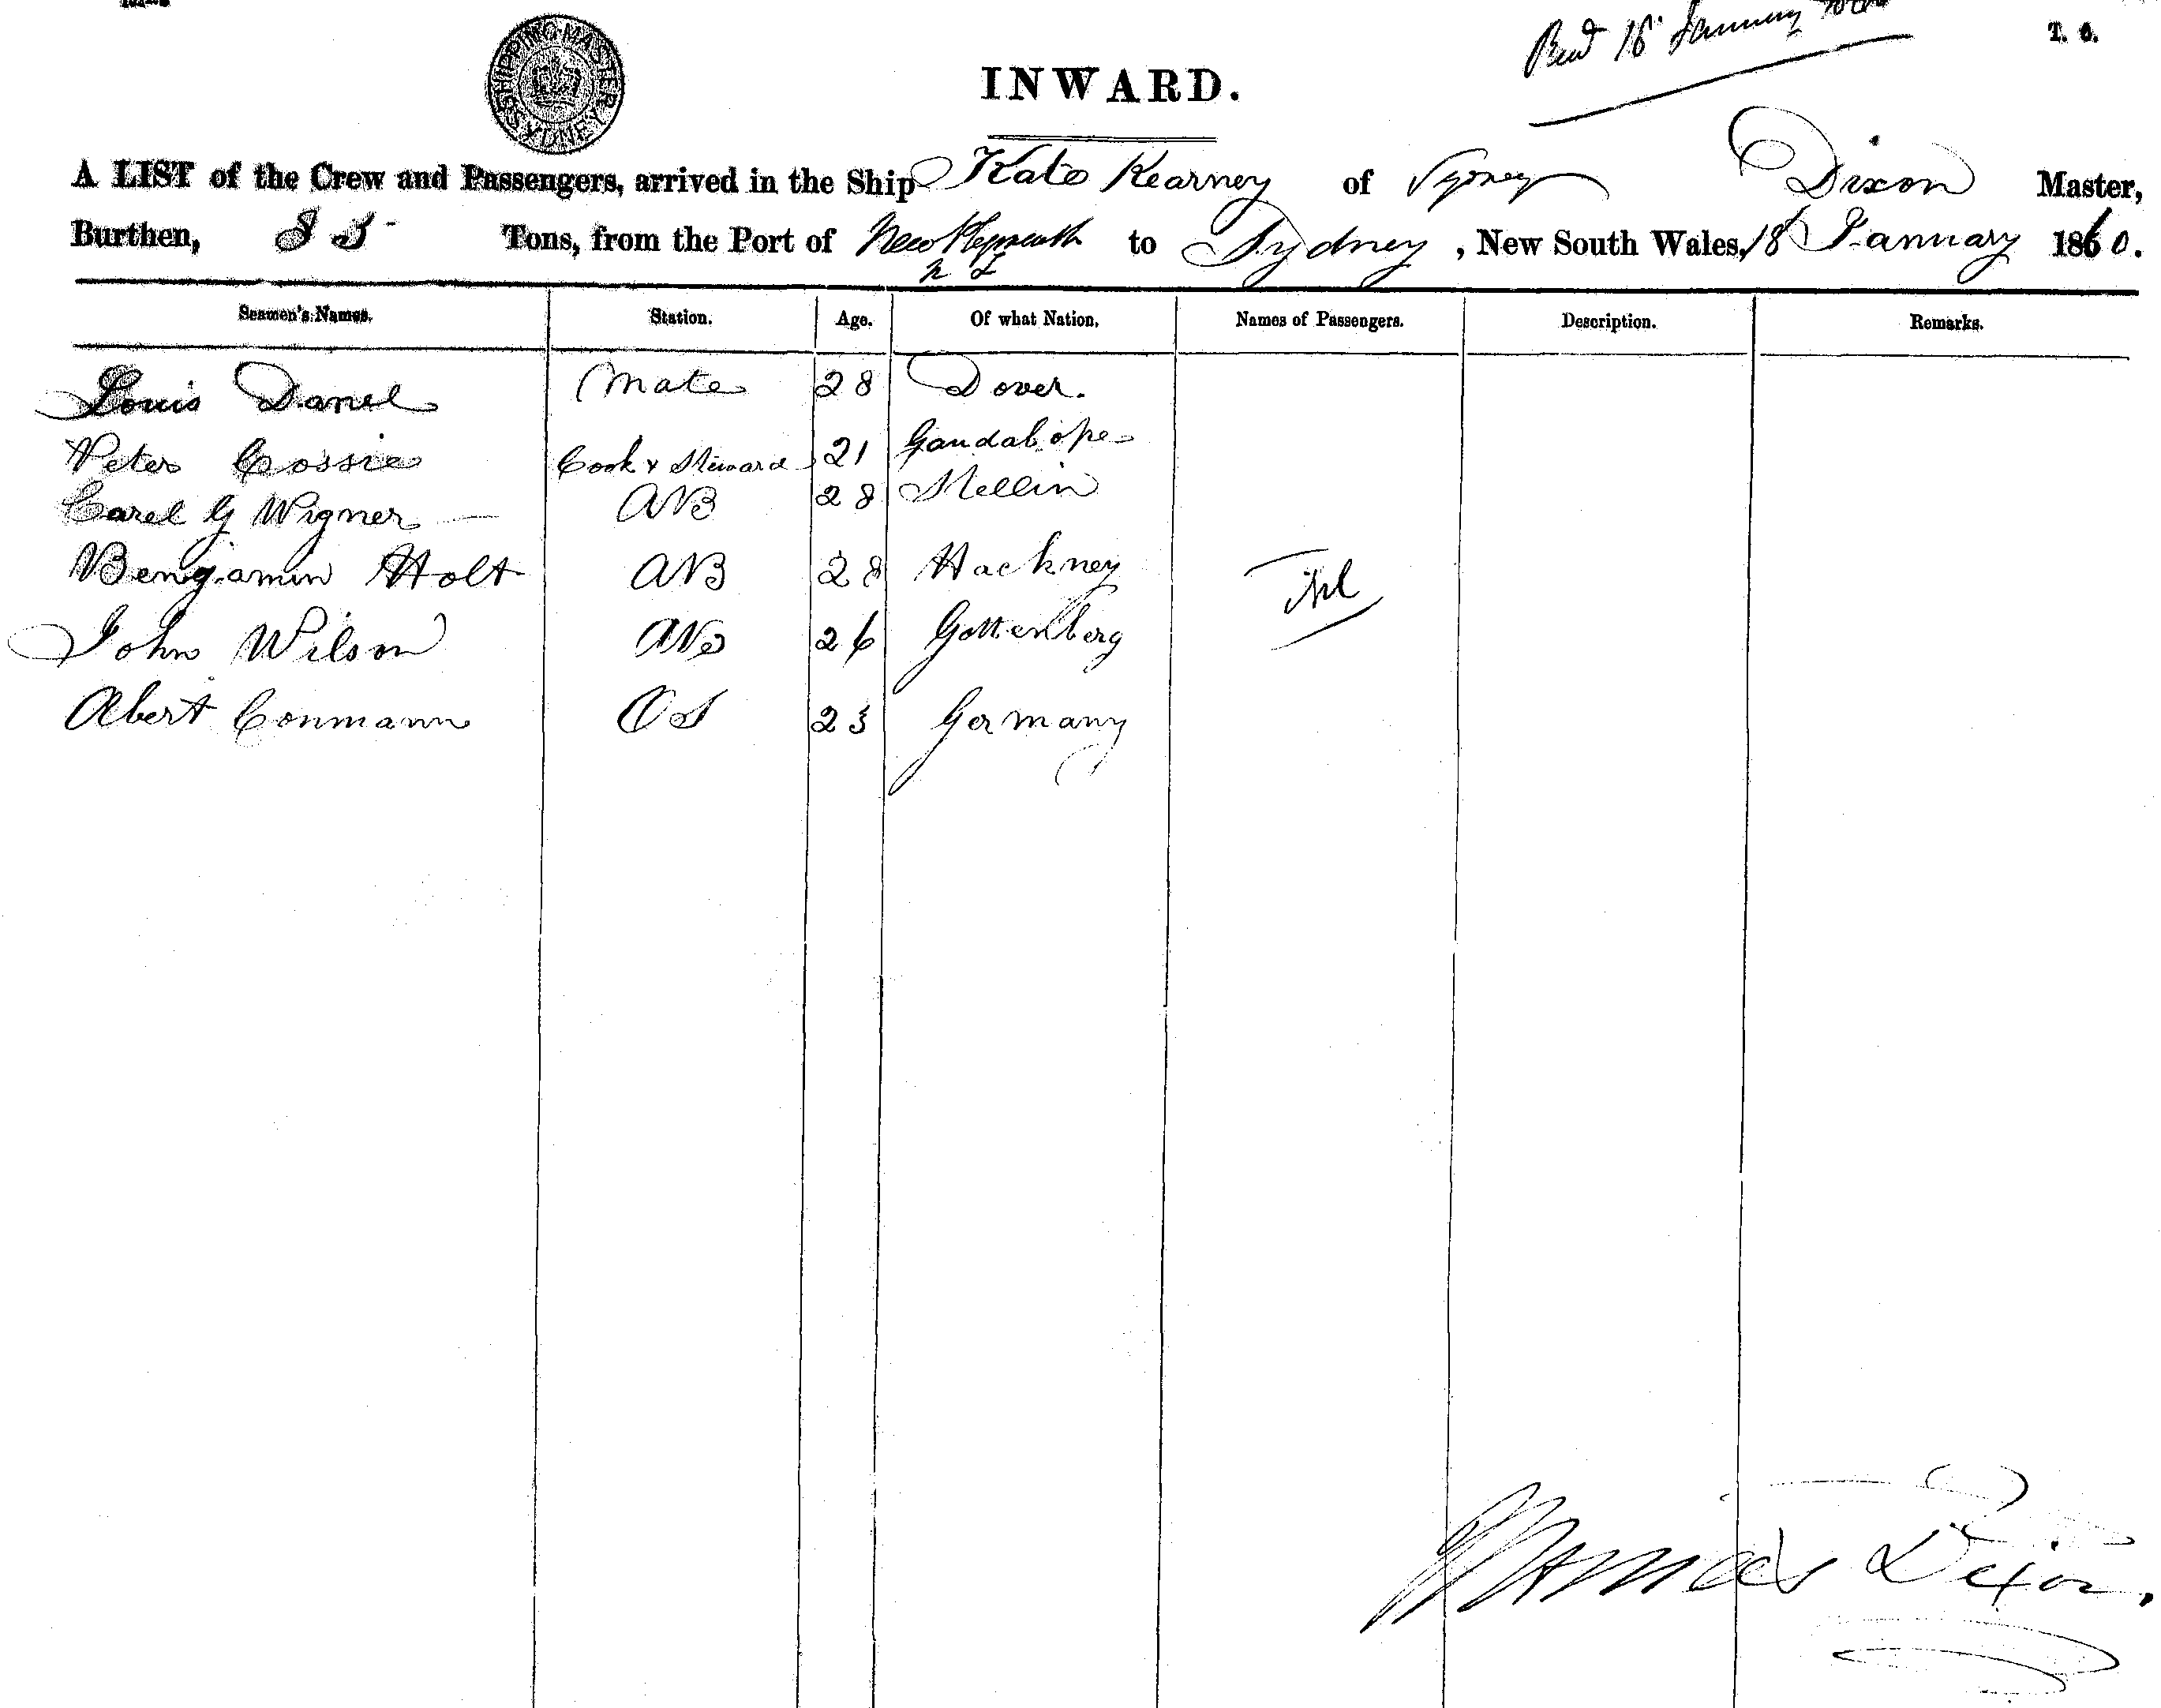 SHIPPING MASTER SYDNEY
T. O.
18 January
INWARD.
A LIST of the Crew and Passengers, arrived in the Ship Kate Kearney of Sydney Dixon Master,
Burthen, Tons, from the Port of New Plymouth to Sydney, New South Wales, 18 January 1860.
N Z
Seamen's Names. Station. Age. Of what Nation. Names of Passengers. Description. Remarks.
Louis Danel Mate 28 Dover.
Peter Cossie Cook & Steward 21 Gaudalope
Carel G Wigner AB 28 Stellin
Bengamin Holt AB 28 Hackney
Nil
John Wilson AB 26 Gottenberg
Abert Conmann OS 23 Germany
Dixon.